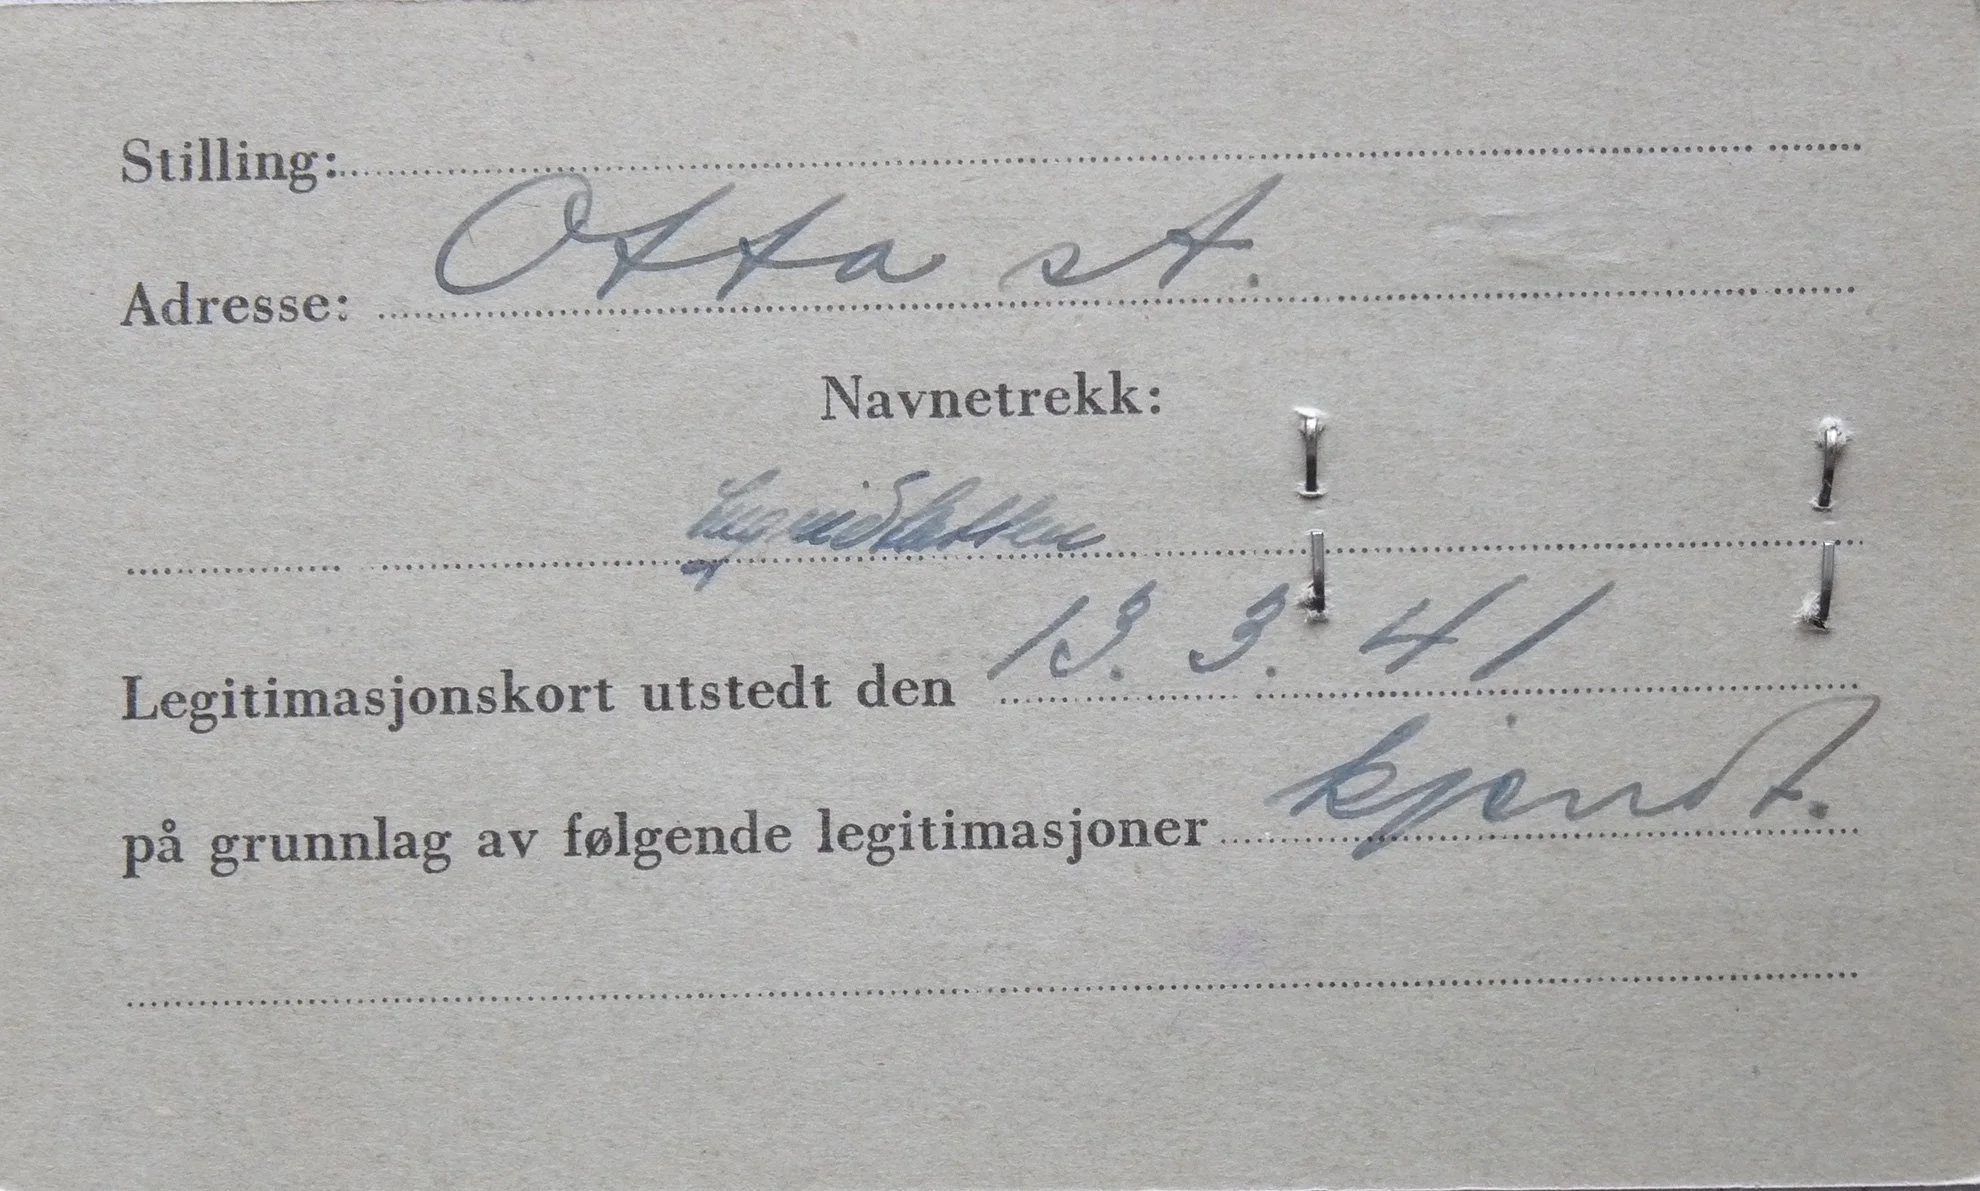 Stilling:
Adresse: Otta st.
Navnetrekk:
Legitimasjonskort utstedt den 13. 3. 41
på grunnlag av følgende legitimasjoner kjendt.